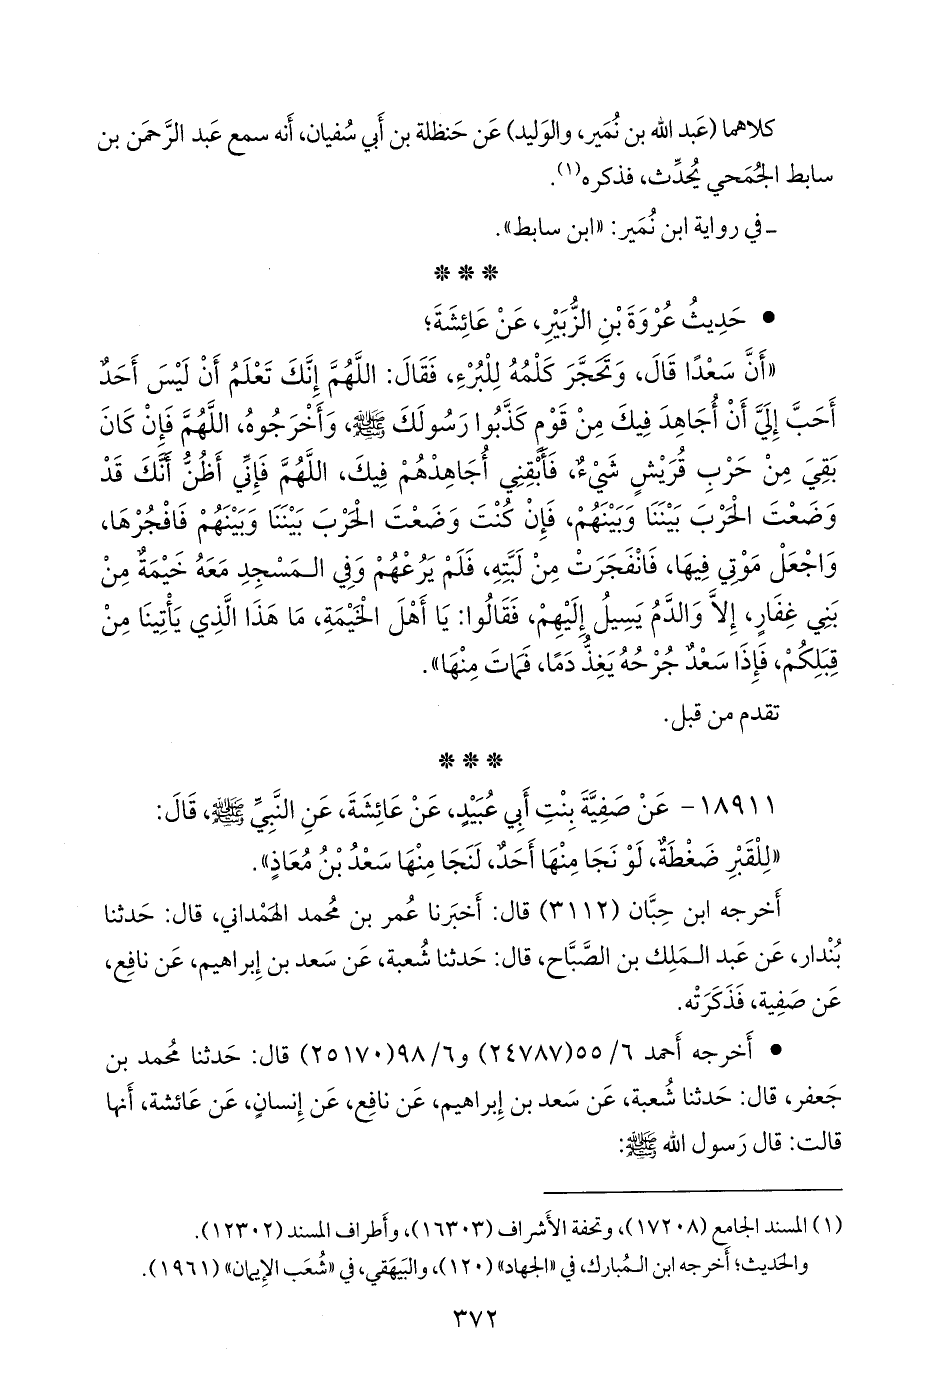 كلاهما (عَبد الله بن نُمَير، والوَليد) عَن حَنظلة بن أَبي سُفيان، أَنه سمع عَبد الرَّحمَن بن
سابط الجُمَحي يُحَدِّث، فذكره(١).
ـ في رواية ابن نُمَير: «ابن سابط».
* * *
• حَدِيثُ عُرْوَةَ بْنِ الزُّبَيْرِ، عَنْ عَائِشَةَ؛
«أَنَّ سَعْدًا قَالَ، وَتَحَجَّرَ كَلْمُهُ لِلْبُرْءِ، فَقَالَ: اللَّهُمَّ إِنَّكَ تَعْلَمُ أَنْ لَيْسَ أَحَدٌ
أَحَبَّ إِلَيَّ أَنْ أُجَاهِدَ فِيكَ مِنْ قَوْمٍ كَذَّبُوا رَسُولَكَ ﷺ، وَأَخْرَجُوهُ، اللَّهُمَّ فَإِنْ كَانَ
بَقِيَ مِنْ حَرْبِ قُرَيْشٍ شَيْءٌ، فَأَبْقِنِي أُجَاهِدْهُمْ فِيكَ، اللَّهُمَّ فَإِنِّي أَظُنُّ أَنَّكَ قَدْ
وَضَعْتَ الْحَرْبَ بَيْنَنَا وَبَيْنَهُمْ، فَإِنْ كُنْتَ وَضَعْتَ الْحَرْبَ بَيْنَنَا وَبَيْنَهُمْ فَافْجُرْهَا،
وَاجْعَلْ مَوْتِي فِيهَا، فَانْفَجَرَتْ مِنْ لَبَّتِهِ، فَلَمْ يَرُعْهُمْ وَفِي الـمَسْجِدِ مَعَهُ خَيْمَةٌ مِنْ
بَنِي غِفَارٍ، إِلاَّ وَالدَّمُ يَسِيلُ إِلَيْهِمْ، فَقَالُوا: يَا أَهْلَ الْخَيْمَةِ، مَا هَذَا الَّذِي يَأْتِينَا مِنْ
قِبَلِكُمْ، فَإِذَا سَعْدٌ جُرْحُهُ يَغِذُّ دَمًا، فَمَاتَ مِنْهَا».
تقدم من قبل.
* * *
١٨٩١١- عَنْ صَفِيَّةَ بِنْتِ أَبِي عُبَيْدٍ، عَنْ عَائِشَةَ، عَنِ النَّبِيِّ ﷺ، قَالَ:
«لِلْقَبْرِ ضَغْطَةٌ، لَوْ نَجَا مِنْهَا أَحَدٌ، لَنَجَا مِنْهَا سَعْدُ بْنُ مُعَاذٍ».
أَخرجه ابن حِبَّان (٣١١٢) قال: أَخبَرنا عُمر بن مُحمد الهَمْداني، قال: حَدثنا
بُنْدار، عَن عَبد الـمَلِك بن الصَّبَّاح، قال: حَدثنا شُعبة، عَن سَعد بن إِبراهيم، عَن نافِع،
عَن صَفِية، فَذَكَرَتْه.
• أَخرجه أَحمد ٦/ ٥٥(٢٤٧٨٧) و٦/ ٩٨(٢٥١٧٠) قال: حَدثنا مُحمد بن
جَعفر، قال: حَدثنا شُعبة، عَن سَعد بن إِبراهيم، عَن نافِع، عَن إِنسانٍ، عَن عَائشة، أَنها
قالت: قال رَسول الله ﷺ:
(١) المسند الجامع (١٧٢٠٨)، وتحفة الأَشراف (١٦٣٠٣)، وأَطراف المسند (١٢٣٠٢).
والحَديث؛ أَخرجه ابن الـمُبارك، في «الجهاد» (١٢٠)، والبَيهَقي، في «شُعَب الإِيمان» (١٩٦١).
٣٧٢